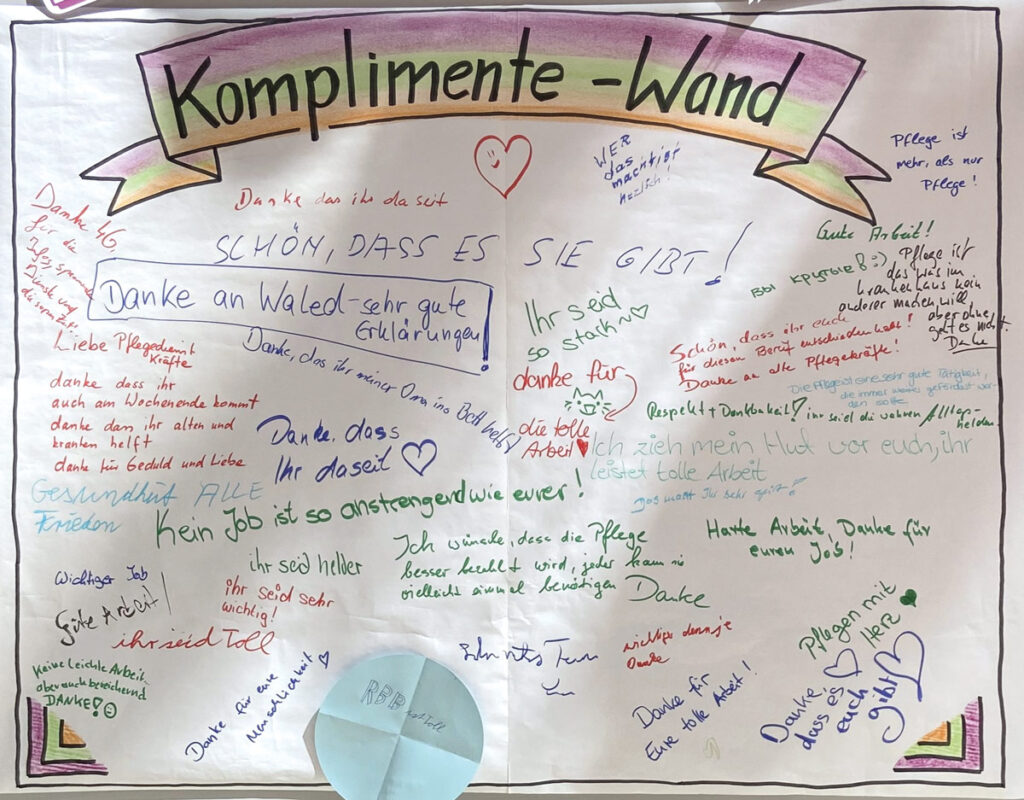 Komplimente-Wand
WER
das
macht
herzlich!
Pflege ist
mehr, als nur
Pflege!
Danke das ihr da seit
Danke 4G
für die
Dienste und
SCHÖN, DASS ES SIE GIBT!
Gute Arbeit!
Вы крутые!!:)
Pflege ist
das was im
krankenhaus kein
anderer machen will,
aber ohne
geht es nicht.
Danke
Danke an Waled-sehr gute
Erklärungen!
Ihr seid
so stark~♡
Schön, dass ihr euch
für diesen Beruf entschieden habt!
Danke an alle Pflegekräfte!
Liebe Pflegedienst
Kräfte
danke dass ihr
auch am Wochenende kommt
danke dan ihr alten und
kranken helft
danke für Geduld und Liebe
Danke, das ihr meiner Oma ins Bett helft!
danke für
die tolle
Arbeit♥
Die Pflege ist eine sehr gute Tätigkeit,
die immer weiter gefördert wer-
den sollte
Respekt + Dankbarkeit! ihr seid die wahren Alltags-
helden.
Danke, dass
Ihr daseit ♡
Ich zieh mein Hut vor euch, ihr
leistet tolle Arbeit
Das macht Ihr sehr gut!
Gesundheit ALLE
Frieden
Kein Job ist so anstrengend wie eurer!
ihr seid helder
Ich wünsche, dass die Pflege
besser bezahlt wird, jeder kann sie
vielleicht einmal benötigen
Danke
Harte Arbeit, Danke für
euren Job!
Wichtiger Job
Gute Arbeit!
ihr seid sehr
wichtig!
ihr seid Toll
wichtiger denn je
Danke
Pflegen mit
Herz ♥
Keine leichte Arbeit
aber auch bereichernd
DANKE!☺
Danke für eure
Menschlichkeit ♡
RBB
ist toll
Team
Danke für
Eure tolle Arbeit!
Danke, ♡
dass es
euch
gibt♡